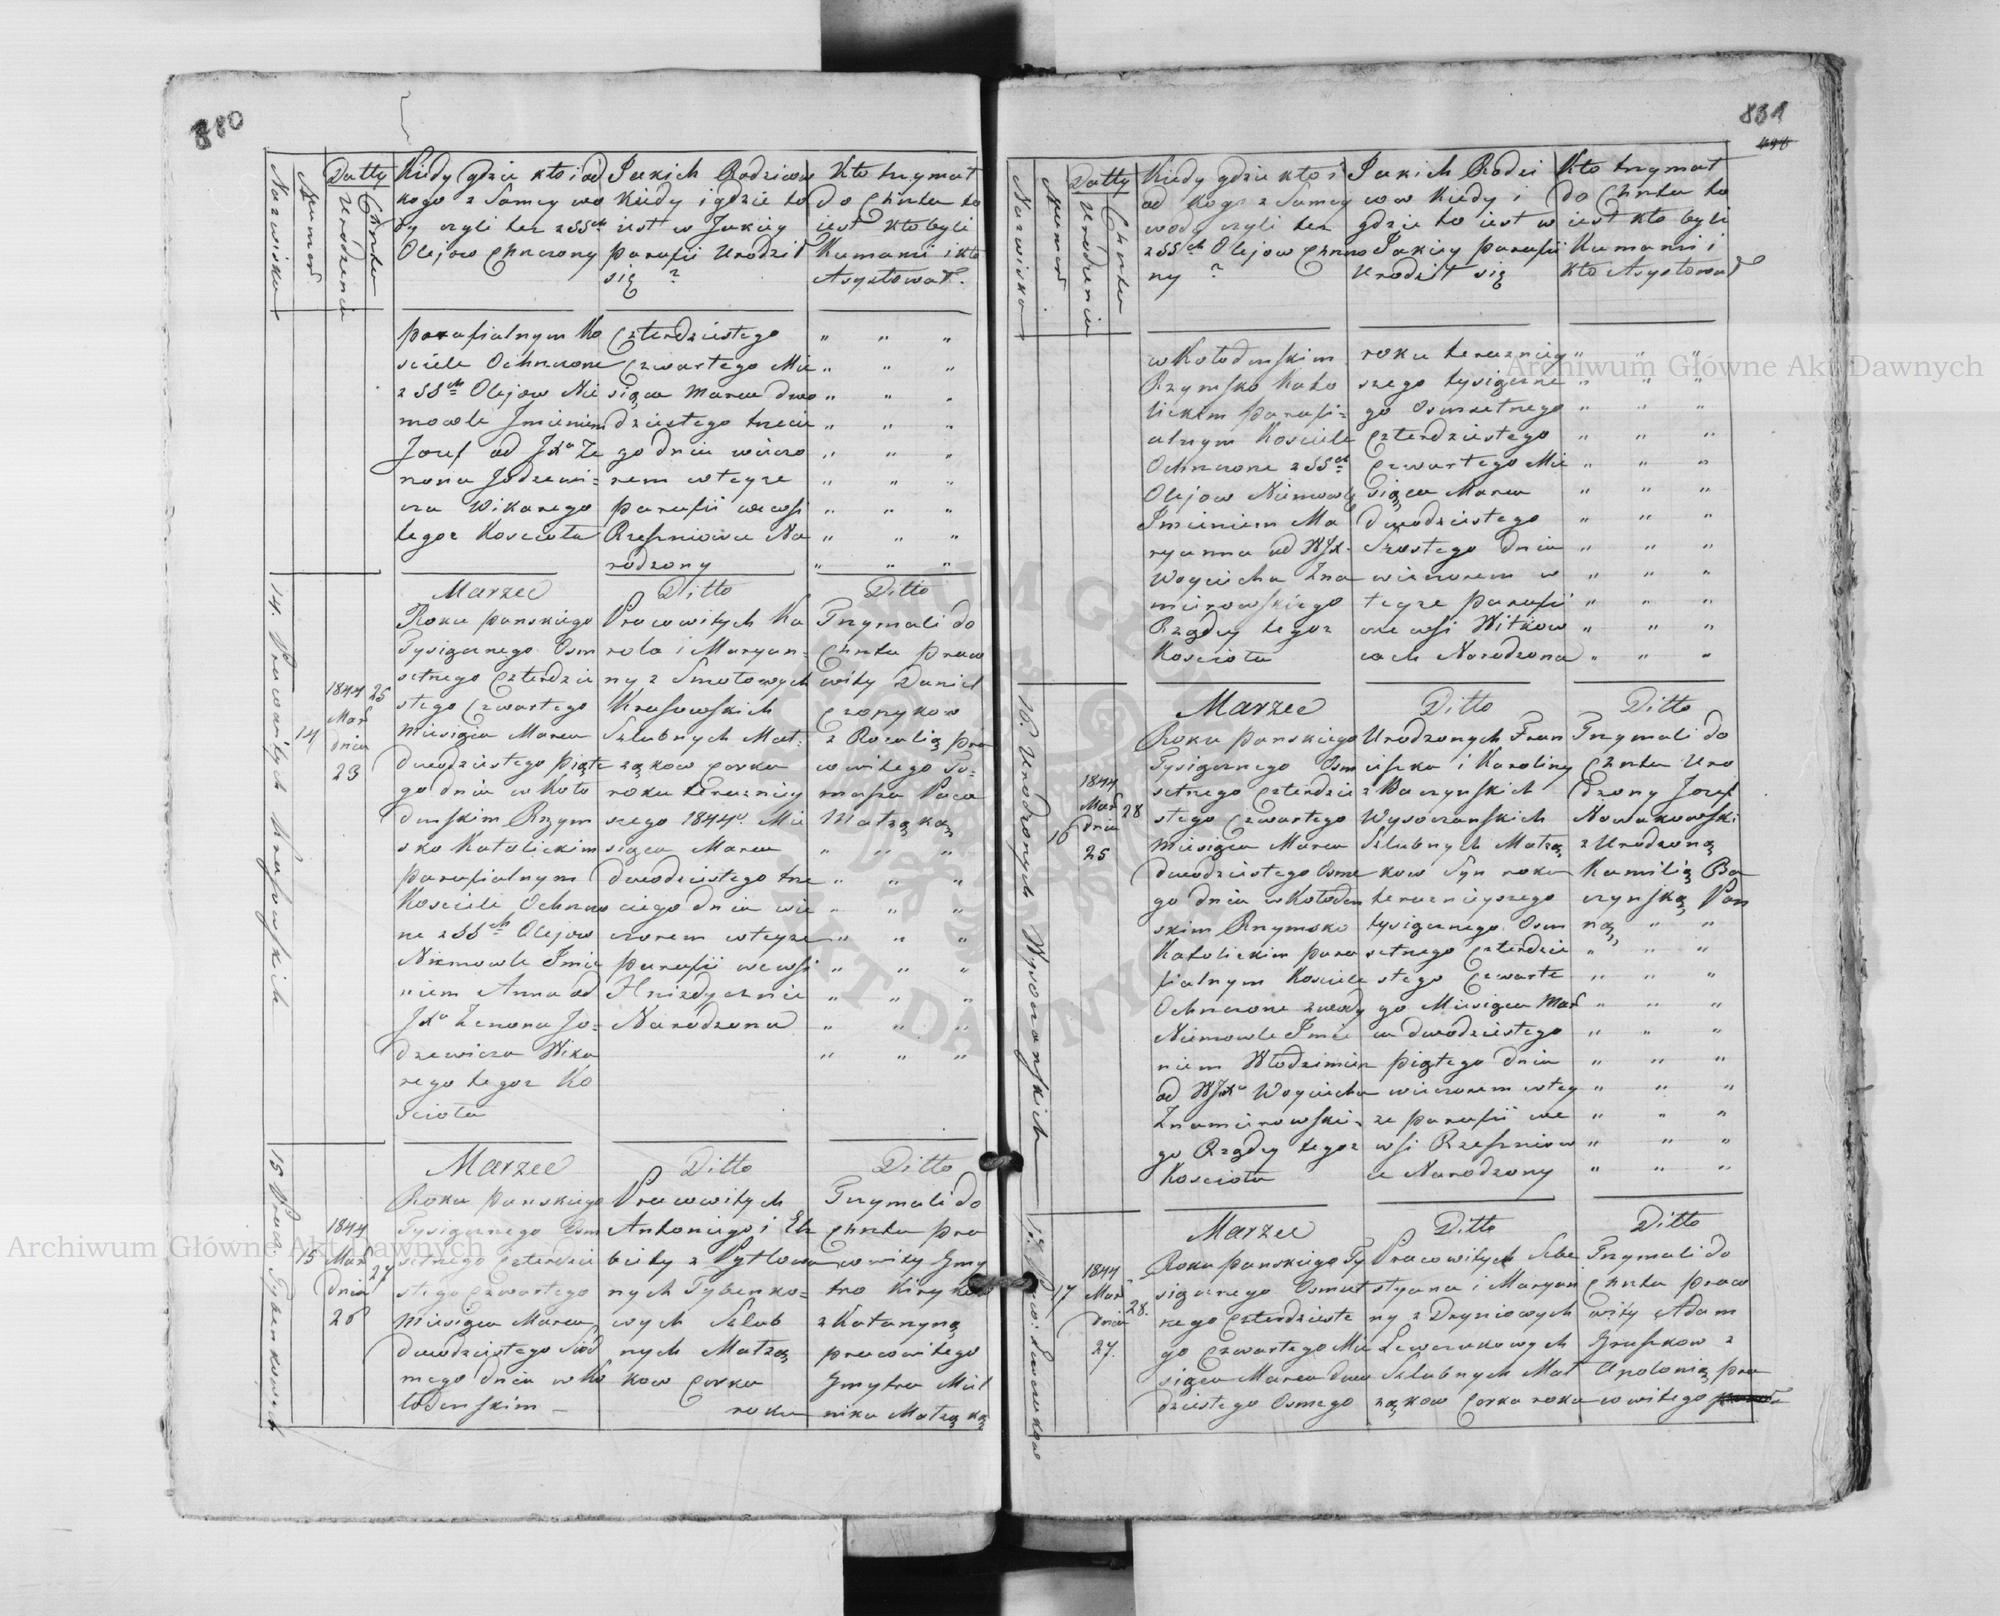 810
Nazwisko
Numer
Datty
Urodzenia
Chrztu
Kiedy gdzie kto i od
kogo z Samey wo
dy czyli tez z SSch
Olejow Chrzczony
Jakich Rodzicow
Kiedy i gdzie to
iest w Jakiey
parafii Urodził
się ?
Kto trzymał
do Chrztu to
iest Kto byli
Kumami i kto
Asystował.
parafialnym Ko
sciele Ochrzcone
z SSch Olejow Nie
mowle Jmieniem
Jozef od JXa Ze
nona Jodzewi-
cza Wikarego
tegoz Kosciola
Czterdziestego
Czwartego Mie
siąca Marca dwo
dziestego trzecie
go dnia wieczo
rem w teyze
parafii we wsi
Rzeszniowce Na
rodzony
14. Prawowitych Krasowskich
14
1844
Mar
dnia
23
25
Marzec
Roku panskiego
Tysiącznego Osm
setnego Czterdzie
stego Czwartego
Miesiąca Marca
dwodziestego piąte
go dnia w Koło
denskim Rzym
sko Katolickim
parafialnym
Kosciele Ochrzco
ne z SSch Olejow
Niemowle Jmie
niem Anna od
JXa Zenona Jo-
dzewicza Wika
rego tegoz Ko
sciola
Ditto
Prawowitych Ka
rola i Maryan-
ny z Smotowych
Krasowskich
Szlubnych Mał-
ząkow Corka
roku terazniey
szego 1844o Mie
siąca Marca
dwodziestego trze
ciego dnia wie
czorem w teyze
parafii we wsi
Hniedycznie
Narodzona
Ditto
Trzymali do
Chrztu praw
wity Daniel
Czopykow
z Rozalią pra
wowitego To-
masza Paca
Małząką
15 Praw. Tybenkowych
15
1844
Mar
dnia
26
27
Marzec
Roku panskiego
Tysiącznego Osm
setnego Czterdzie
stego Czwartego
Miesiąca Marca
dwodziestego Siód
mego dnia w Ko
łodenskim –
Ditto
Prawowitych
Antoniego i Elz
biety z Pytlowa
nych Tybenko-
wych Szlub
nych Małzą
kow Corka
roku
Ditto
Trzymali do
Chrztu pra
wowity Jmy
tro Kirykow
z Katarzyną
prawowitego
Jmytra Miel
nika Małząką
831
Nazwisko
Numer
Datty
Urodzenia
Chrztu
Kiedy gdzie kto i
od Kogo z Samey
wody czyli tez
z SSch Olejow Chrzco
ny ?
Jakich Rodzi
cow Kiedy i
gdzie to iest w
Jakiey parafii
Urodził się
Kto trzymał
do Chrztu to
iest kto byli
Kumami i
kto Asystował
w Kołodenskim
Rzymsko Kato
lickim parafi-
alnym Kosciele
Ochrzcone z SSch
Olejow Niemowle
Jmieniem Ma
ryanna od WJX.
Woyciecha Zna
mierowskiego
Rządcy tegoz
Kosciola
roku terazniey
szego tysiączne
go Osmsetnego
Czterdziestego
Czwartego Mie
siąca Marca
dwodziestego
Szostego dnia
wieczorem w
teyze parafii
we wsi Witkow
cach Narodzona
16. Urodzonych Wysoczanskich
16
1844
Mar
dnia
25
28
Marzec
Roku panskiego
Tysiącznego Osm
setnego Czterdzie
stego Czwartego
Miesiąca Marca
dwodziestego Osme
go dnia w Kołoden
skim Rzymsko
Katolickim para
fialnym Kosciele
Ochrzcone z wody
Niemowle Jmie
niem Włodzimierz
od WJXa Woyciecha
Znamierowskie-
go Rządcy tegoz
Kosciola
Ditto
Urodzonych Fran
ciszka i Karoliny
z Baczynskich
Wysoczanskich
Szlubnych Małzą
kow Syn roku
teraznieyszego
tysiącznego Osm
setnego Czterdzie
stego Czwarte
go Miesiąca Mar
ca dwodziestego
piątego dnia
wieczorem w tey
ze parafii we
wsi Rzeszniow
ce Narodzony
Ditto
Trzymali do
Chrztu Uro
dzony Jozef
Nowakowski
z Urodzoną
Kamilią Ba
czynską Pan
ną
17
1844
Mar
dnia
27.
28.
Marzec
Roku panskiego Ty
siącznego Osmset
nego Czterdzieste
go Czwartego Mie
siąca Marca dwo
dziestego Osmego
Ditto
Prawowitych Seba
styana i Maryan
ny z Dryniowych
Lewczukowych
Szlubnych Mał
ząkow Corka roku
Ditto
Trzymali do
Chrztu praw
wity Adam
Hruszkow z
Apolonią pra
wowitego
Archiwum Główne Akt Dawnych
Archiwum Główne Akt Dawnych